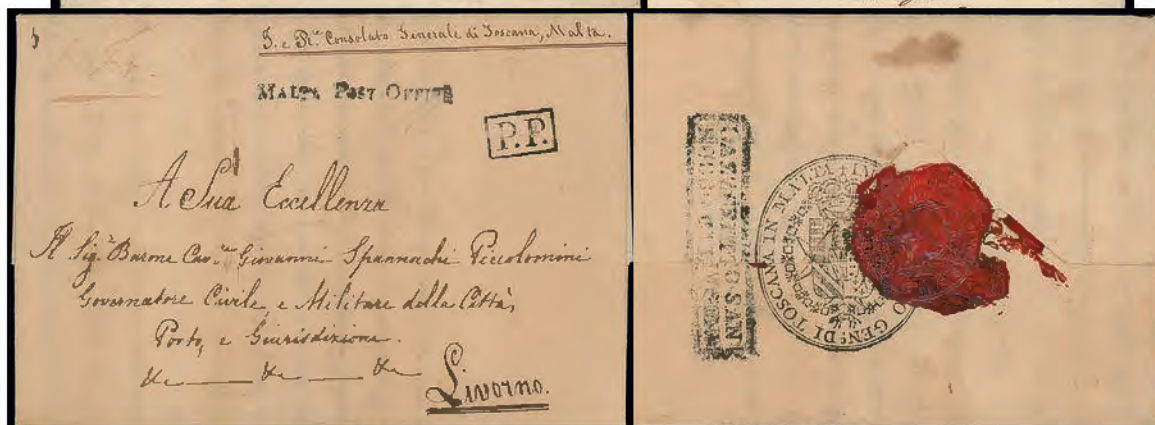 I. e R.le Consolato Generale di Toscana, Malta.
MALTA POST OFFICE
P.P.
A Sua Eccellenza
Il Sig.r Barone Cav.re Giovanni Spannocchi Piccolomini
Governatore Civile, e Militare della Città,
Porto, e Giurisdizione.
&c ___ &c ___ &c
Livorno.
SAN
GEN.E DI TOSCANA IN MALTA